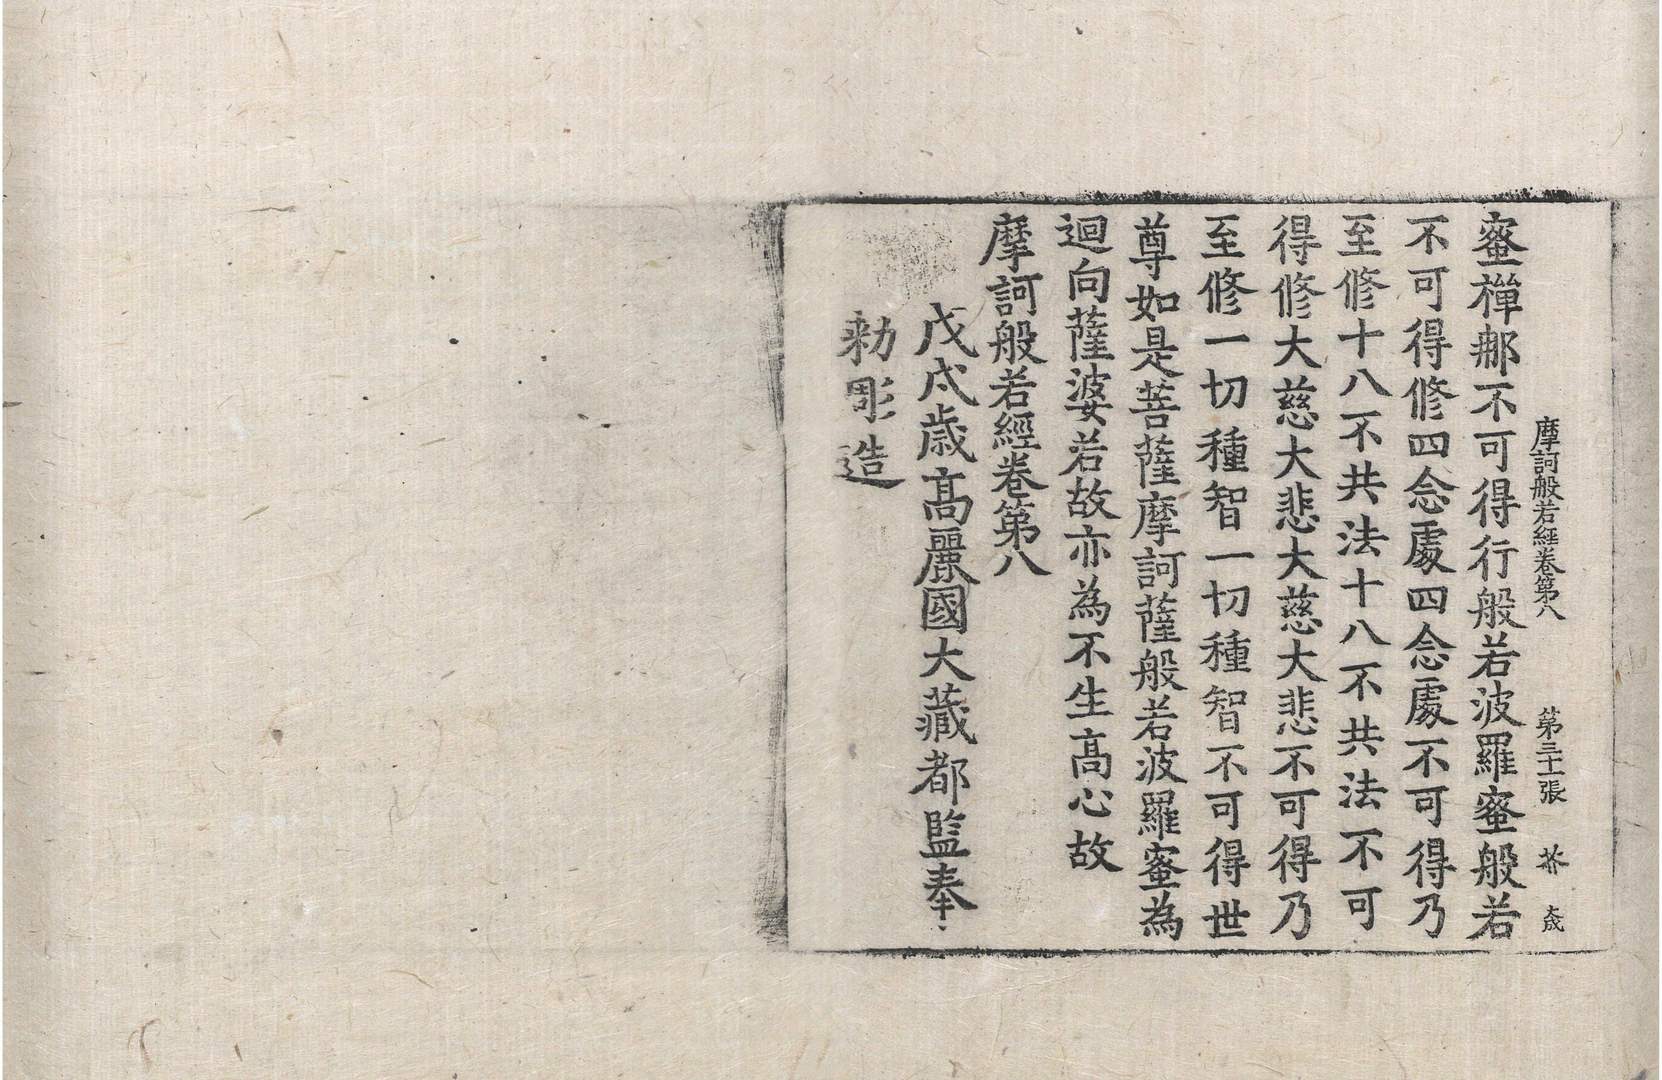 摩訶般若經卷第八 第三十二張 芥 大成
蜜禪那不可得行般若波羅蜜般若
不可得修四念處四念處不可得乃
至修十八不共法十八不共法不可
得修大慈大悲大慈大悲不可得乃
至修一切種智一切種智不可得世
尊如是菩薩摩訶薩般若波羅蜜為
迴向薩婆若故亦為不生高心故
摩訶般若經卷第八
戊戌歲高麗國大藏都監奉
勅彫造